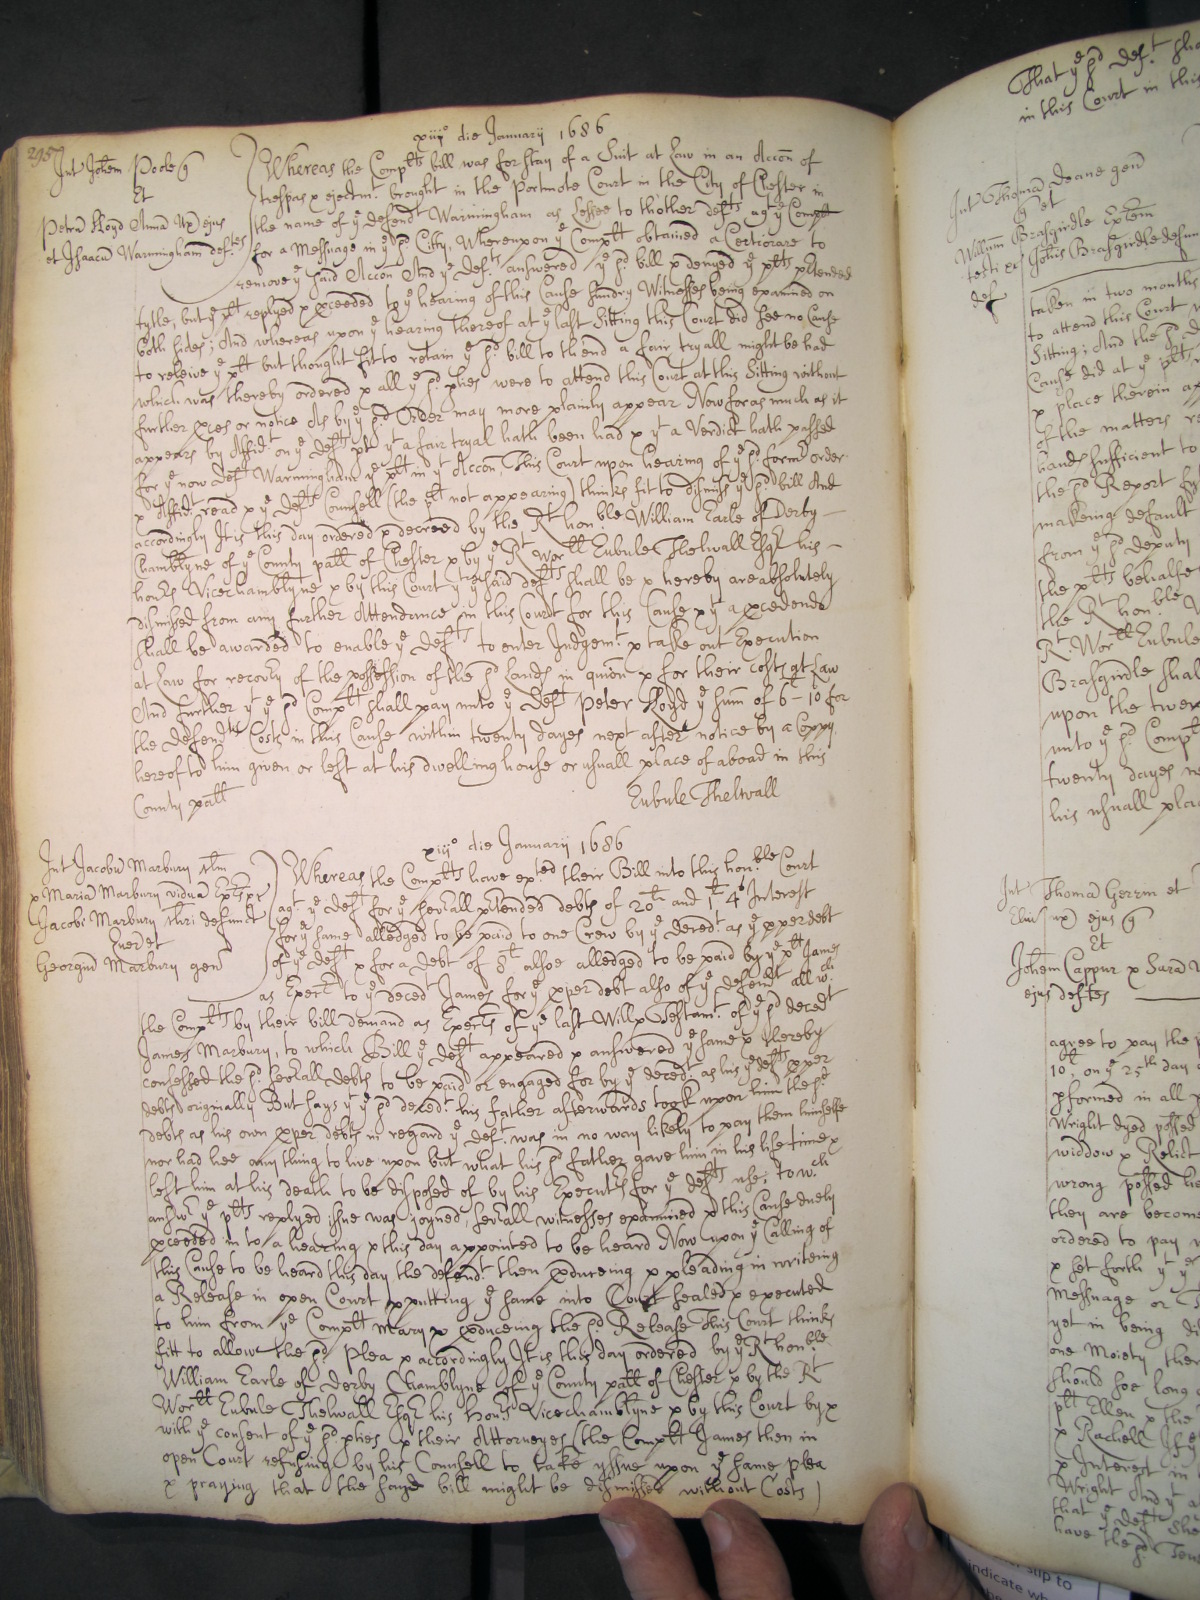 295
xiij° die Januarij 1686
Int Johem Poole q
Et
Petru Lloyd Anna Ux ejus
et Isaacu Warmingham def.tes
Whereas the Comp.lts bill was for stay of a Suit at Law in an Accon of
trespas x ejectmt. brought in the Portmote Court in the City of Chester in
the name of ye defend.t Warmingham as Lessee to thother def.ts agt ye Complt
for a Messuage in ye sd. Citty, Whereupon ye Complt obtained a Certiorare to
remove ye said Accon And ye Def.ts answered ye sd bill x denyed ye plts ptended
tytle, but ye plt replyed x pceeded to ye hearing of this Cause sundry Witnesses being examined on
both sides; And whereas upon ye hearing thereof at ye last Sitting this Court did see no Cause
to releive ye plt but thought fit to retain ye sd. bill to thend a fair tryall might be had
which was thereby ordered x all ye sd. pties were to attend this Court at this Sitting without
further pces or notice As by ye sd. Order may more plainly appear Now foras much as it
appears by Affidt. on ye Defts pt yt a fair tryal hath been had x yt a Verdict hath passed
for ye now Deft Warmingham ye plt in yt Accon, This Court upon hearing of ye sd. formr order
x Affidt. read x ye Defts Counsell (the plt not appearing) thinks fit to dismiss ye sd bill And
accordingly It is this day ordered x decreed by the Rt hon.ble William Earle of Derby —
Chamblyne of ye County patt of Chester x by ye Rt Worll Eubule Thelwall Esqr his —
honrs Vicechamblyne x by this Court yt ye said defts shall be x hereby are absolutely
dismised from any further Attendance in this Court for this Cause x yt a pcedendo
shall be awarded to enable ye Defts to enter Judgemt. x take out Execution
at Law for recovry of the possession of the sd Lands in queon x for their costs at Law
And further yt ye sd Complt shall pay unto ye Deft Peter Lloyd ye sum of 6 - 10 for
the defendts Costs in this Cause within twenty dayes next after notice by a Coppy
hereof to him given or left at his dwelling house or usuall place of aboad in this
County patt
Eubule Thelwall
xiij° die Januarij 1686
Int Jacobu Marbury
x Maria Marbury vidua
Jacobi Marbury defunct
Quer et
Georgiu Marbury gen
Whereas the Complts have exted their Bill into this hon.ble Court
agt. ye Deft for ye severall ptended debts of 20li and Interest
for ye same alledged to be paid to one Crew by ye deced.t as ye pper debt
of ye Deft x for a debt of 8li alsoe alledged to be paid by ye plt James
as Execr to ye deced.t James for ye pper debt also of ye defend.t all w.ch
the Complts by their bill demand as Execrs of ye last Will x Testamt. of ye sd deced.t
James Marbury, to which Bill ye Deft appeared x answered ye same x thereby
confessed the sd. severall Debts to be paid or engaged for by ye deced.t as his ye defts pper
debts originally But says yt ye sd deced.t his father afterwards took upon him the sd
debts as his own pper debts in regard ye Deft. was in no way likely to pay them himselfe
nor had hee any thing to live upon but what his sd father gave him in his life time x
left him at his death to be disposed of by his Executrs for ye defts use; to w.ch
answr ye plts replyed issue was joyned, severall witnesses examined x this Cause duely
pceeded in to a hearing x this day appointed to be heard Now upon ye Calling of
this Cause to be heard this day the defend.t then pduceing x pleading in writeing
a Release in open Court x putting ye same into Court sealed x executed
to him from ye Complt Mary x pduceing the sd. Release This Court thinks
fitt to allow the sd. plea x accordingly It is this day ordered by ye Rt hon.ble
William Earle of Derby Chamblyne of ye County patt of Chester x by the Rt
Worll Eubule Thelwall Esqr his honrs Vicechamblyne x by this Court by x
with ye consent of ye sd pties x their Attorneyes (the Complt James then in
open Court refusing by his Counsell to take issue upon ye same plea
x praying that the sayd bill might be dismissed without Costs)
That ye sd Deft. sha
in this Court in this
Int Thoma Deane gen
q et
Willium Brasgirdle Extem
testi Johis Brasgirdle defun
def
taken in two months
to attend this Court
Sitting; And the sd
Cause did at ye plts
x place therein
of the matters
hands sufficient to
the sd Report
makeing default
from ye sd deputy
the plts behalfe
the Rt hon.ble
Rt. Worll Eubule
Brasgirdle shal
upon the twen
unto ye sd Comp
twenty dayes
his usuall plac
Int Thoma Gerrm et
ux ejus q
Et
Johem Cappur x Sara
ejus deftes
agree to pay the
10li. on ye 25th day
pformed in all
Wright dyed possed
widdow x Relict
wrong possed
they are become
ordered to pay
x set forth yt ye
Messuage or
yet in being
one Moiety ther
should soe long
plt Ellen x the
x Rachell
x Interest in
Wright And yt
that ye Deft She
have the sd. Ten
slip to
indicate wh